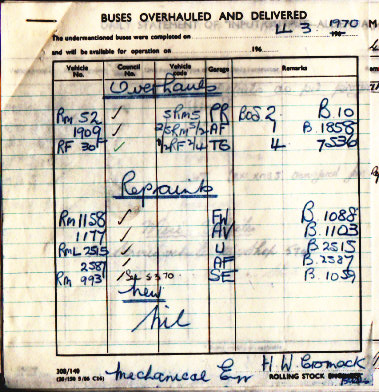 BUSES OVERHAULED AND DELIVERED
The undermentioned buses were completed on 4 3 1970
and will be available for operation on 196
Vehicle No. Council No. Vehicle code Garage Remarks
Overhauls
RM 52 ✓ 5RM5 PR BOS 2 B.10
1909 ✓ 2/5RM5/2 AF 1 B.1858
RF 301 ✓ 2/2RF2/4 TG 4 7536
Repaints
RM 1158 ✓ FW B.1088
1177 ✓ AV B.1103
RML 2515 ✓ U B.2515
2587 ✓ AF B.2587
RM 993 ✓ 5 3 70 SE B.1059
New
Nil
Mechanical Er H W Cromack
ROLLING STOCK